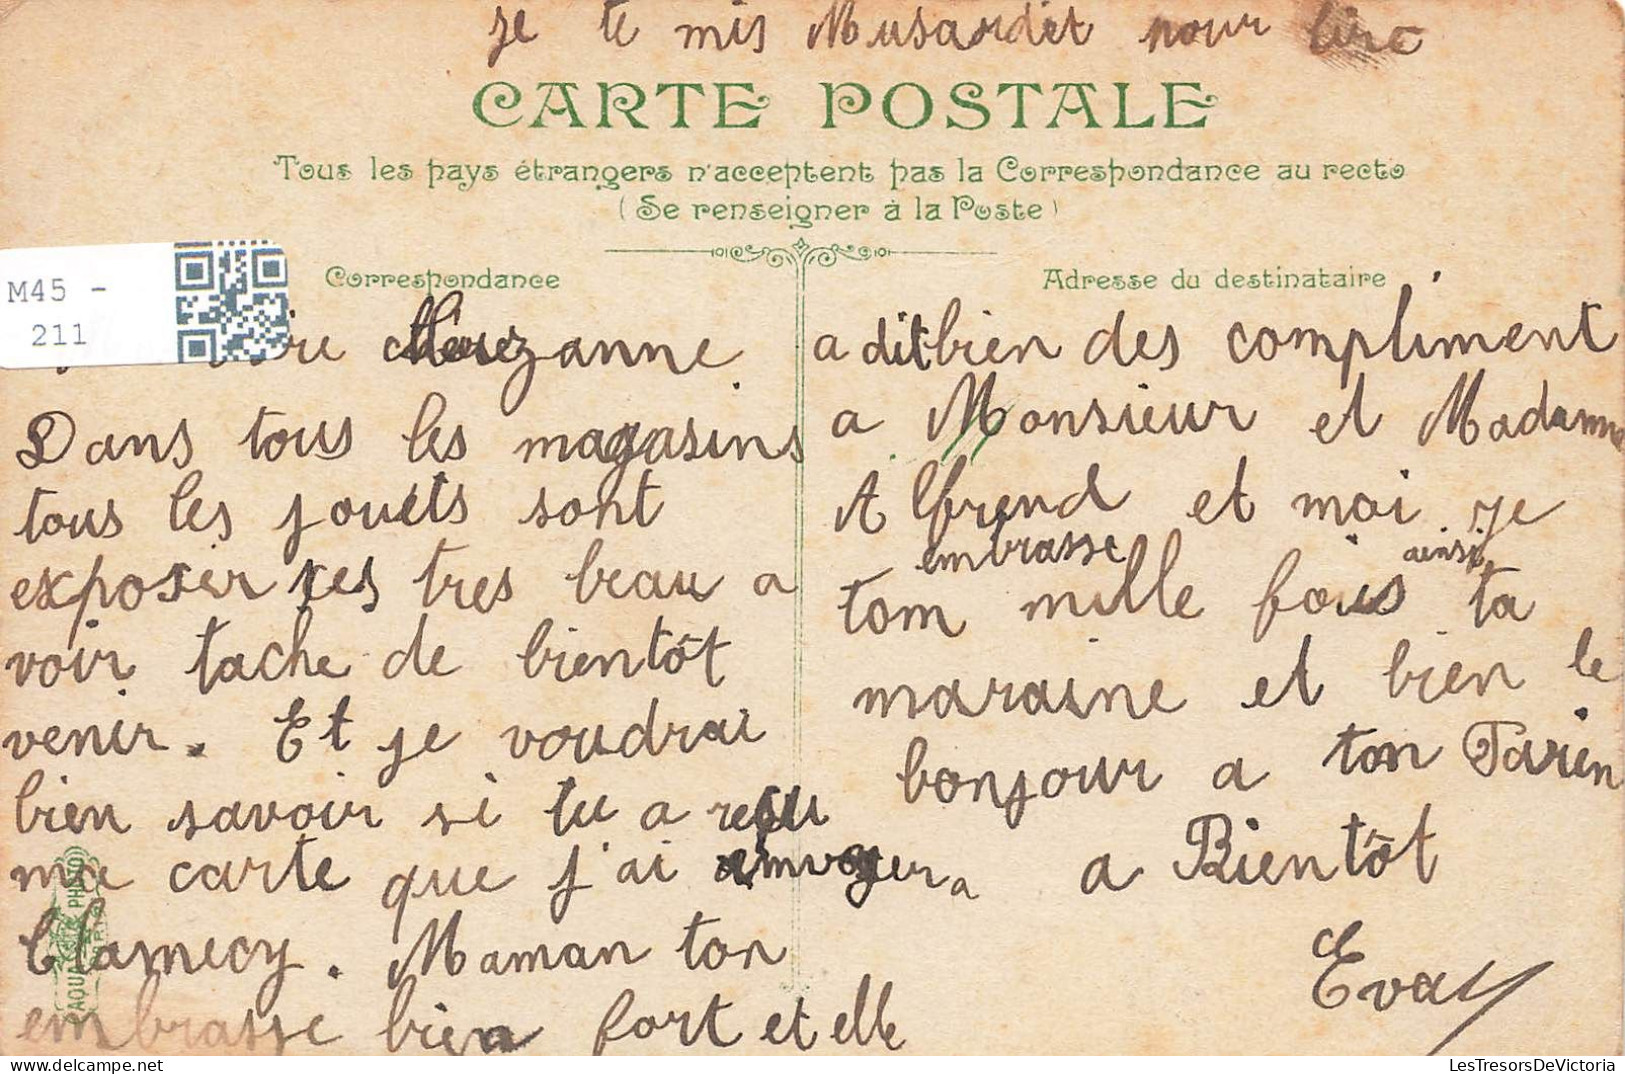 je te mis Musardit pour lire
CARTE POSTALE
Tous les pays étrangers n'acceptent pas la Correspondance au recto
(Se renseigner à la Poste)
Correspondance
Adresse du destinataire
M45 -
211
Dans tous les magasins
tous les jouets sont
exposer ses tres beau a
voir tache de bientôt
venir. Et je voudrai
bien savoir si tu a reçu
ma carte que j'ai envoyer a
Clamecy. Maman ton
embrasse bien fort et elle
a dit bien des compliment
a Monsieur et Madamme
Alfrend et moi je
embrasse ainsi
tom mille fois ta
maraine et bien le
bonjour a ton Parin
a Bientôt
Eva
AQUA PHOTO
LesTresorsDeVictoria